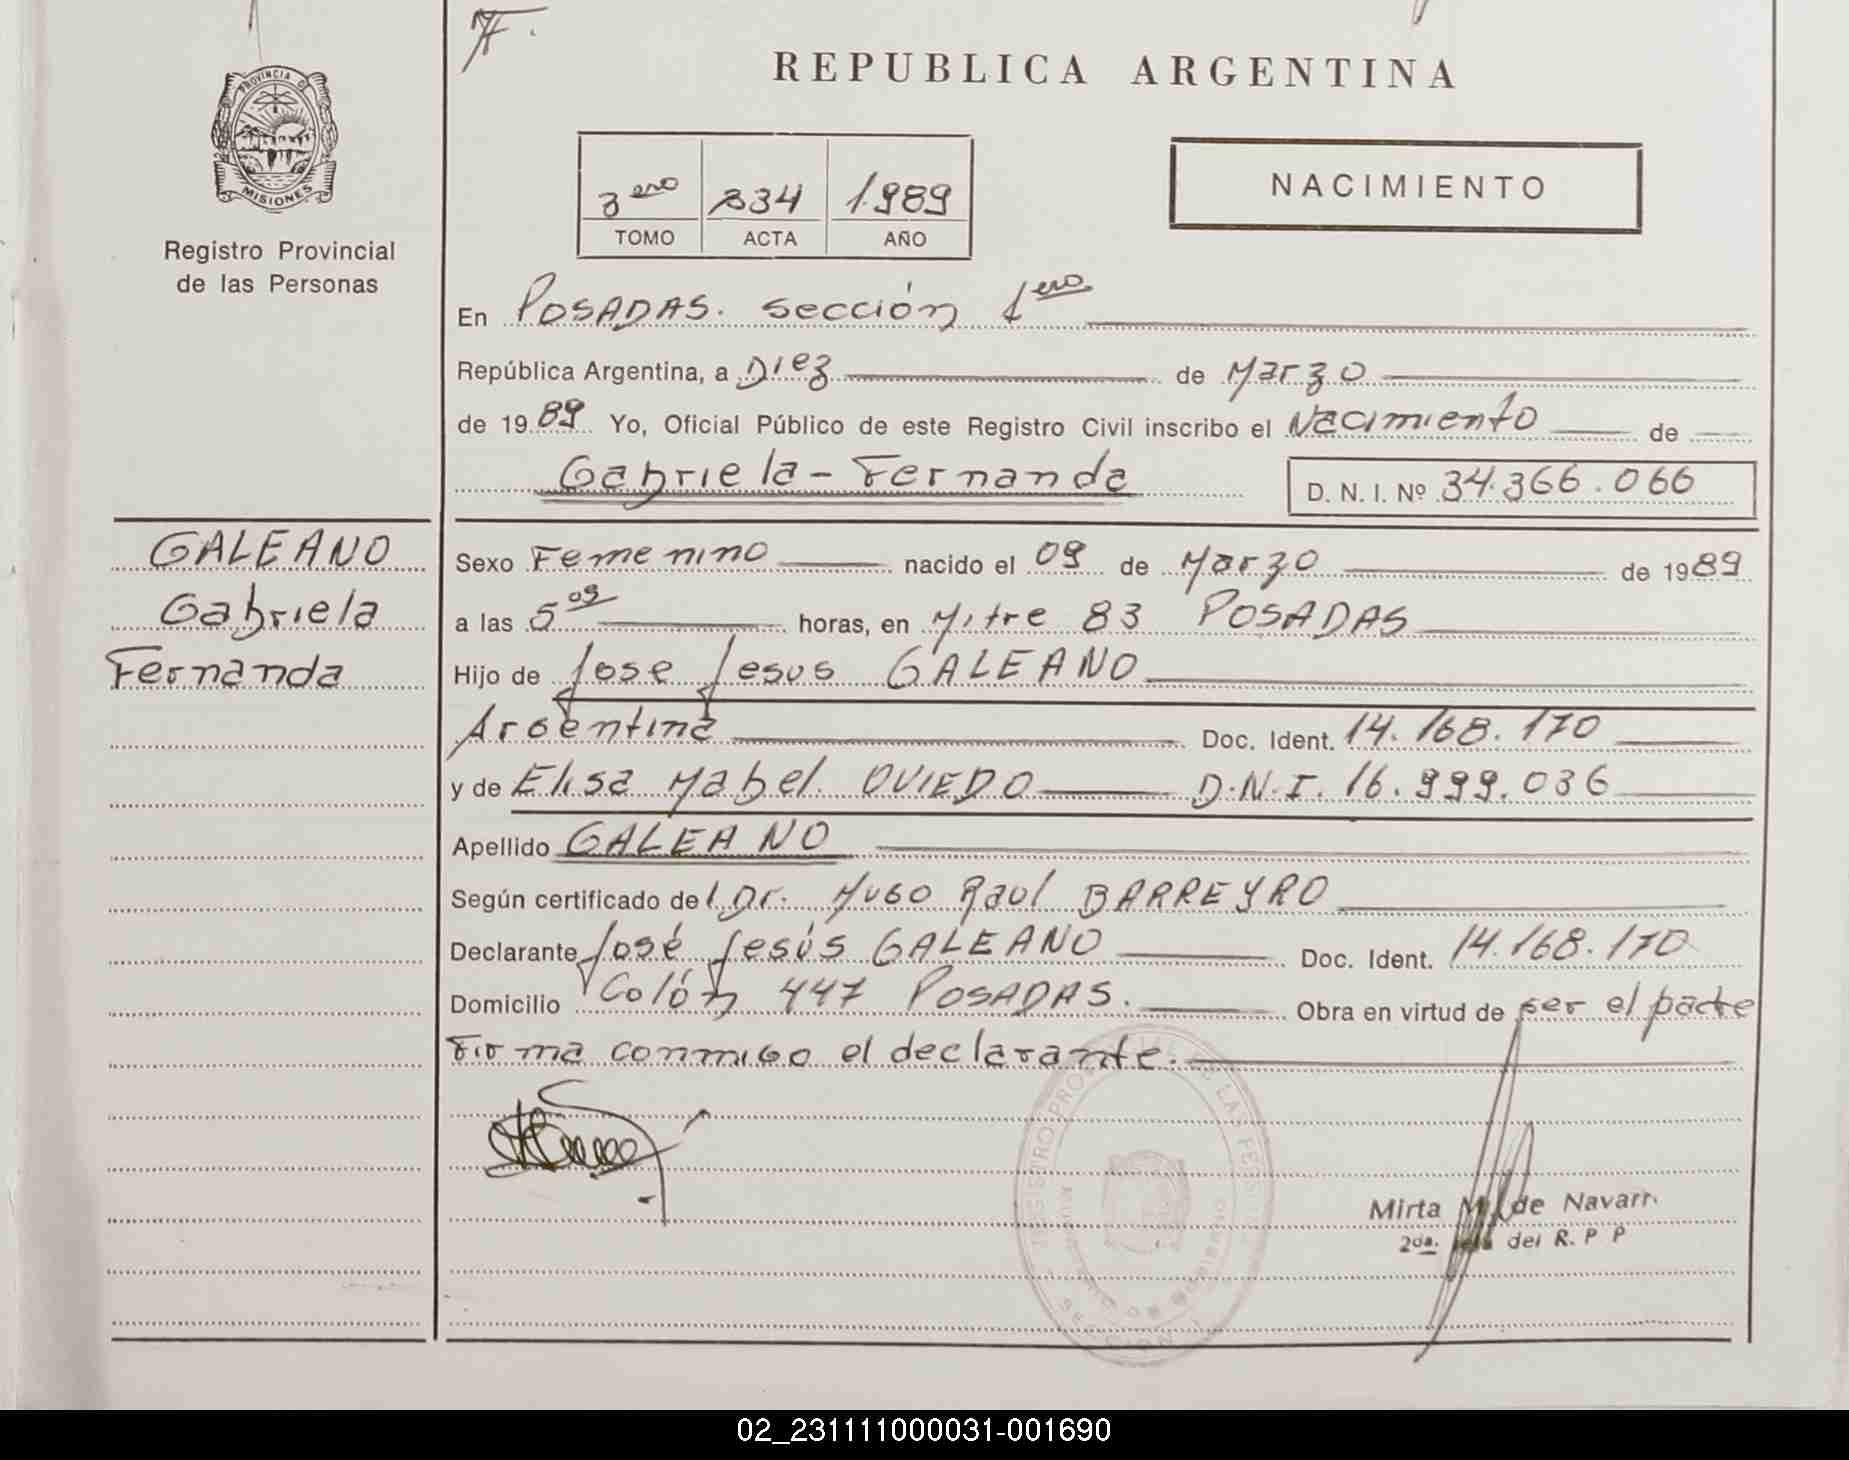 7.
REPUBLICA ARGENTINA
PROVINCIA DE
MISIONES
Registro Provincial
de las Personas
3ero 334 1.989
TOMO ACTA AÑO
NACIMIENTO
En POSADAS. sección 1era
República Argentina, a Diez de Marzo
de 1989 Yo, Oficial Público de este Registro Civil inscribo el Nacimiento de
Gabriela - Fernanda D. N. I. Nº 34.366.066
GALEANO
Gabriela
Fernanda
Sexo Femenino nacido el 09 de Marzo de 1989
a las 5 09 horas, en Mitre 83 POSADAS
Hijo de Jose Jesus GALEANO
Argentina Doc. Ident. 14.168.170
y de Elisa Mabel OVIEDO D.N.I. 16.999.036
Apellido GALEANO
Según certificado del Dr. Hugo Raul BARREYRO
Declarante José Jesús GALEANO Doc. Ident. 14.168.170
Domicilio Colón 447 POSADAS. Obra en virtud de ser el padre
Firma conmigo el declarante.
Mirta de Navarr
2da. del R. P P
SECCION
02_231111000031-001690